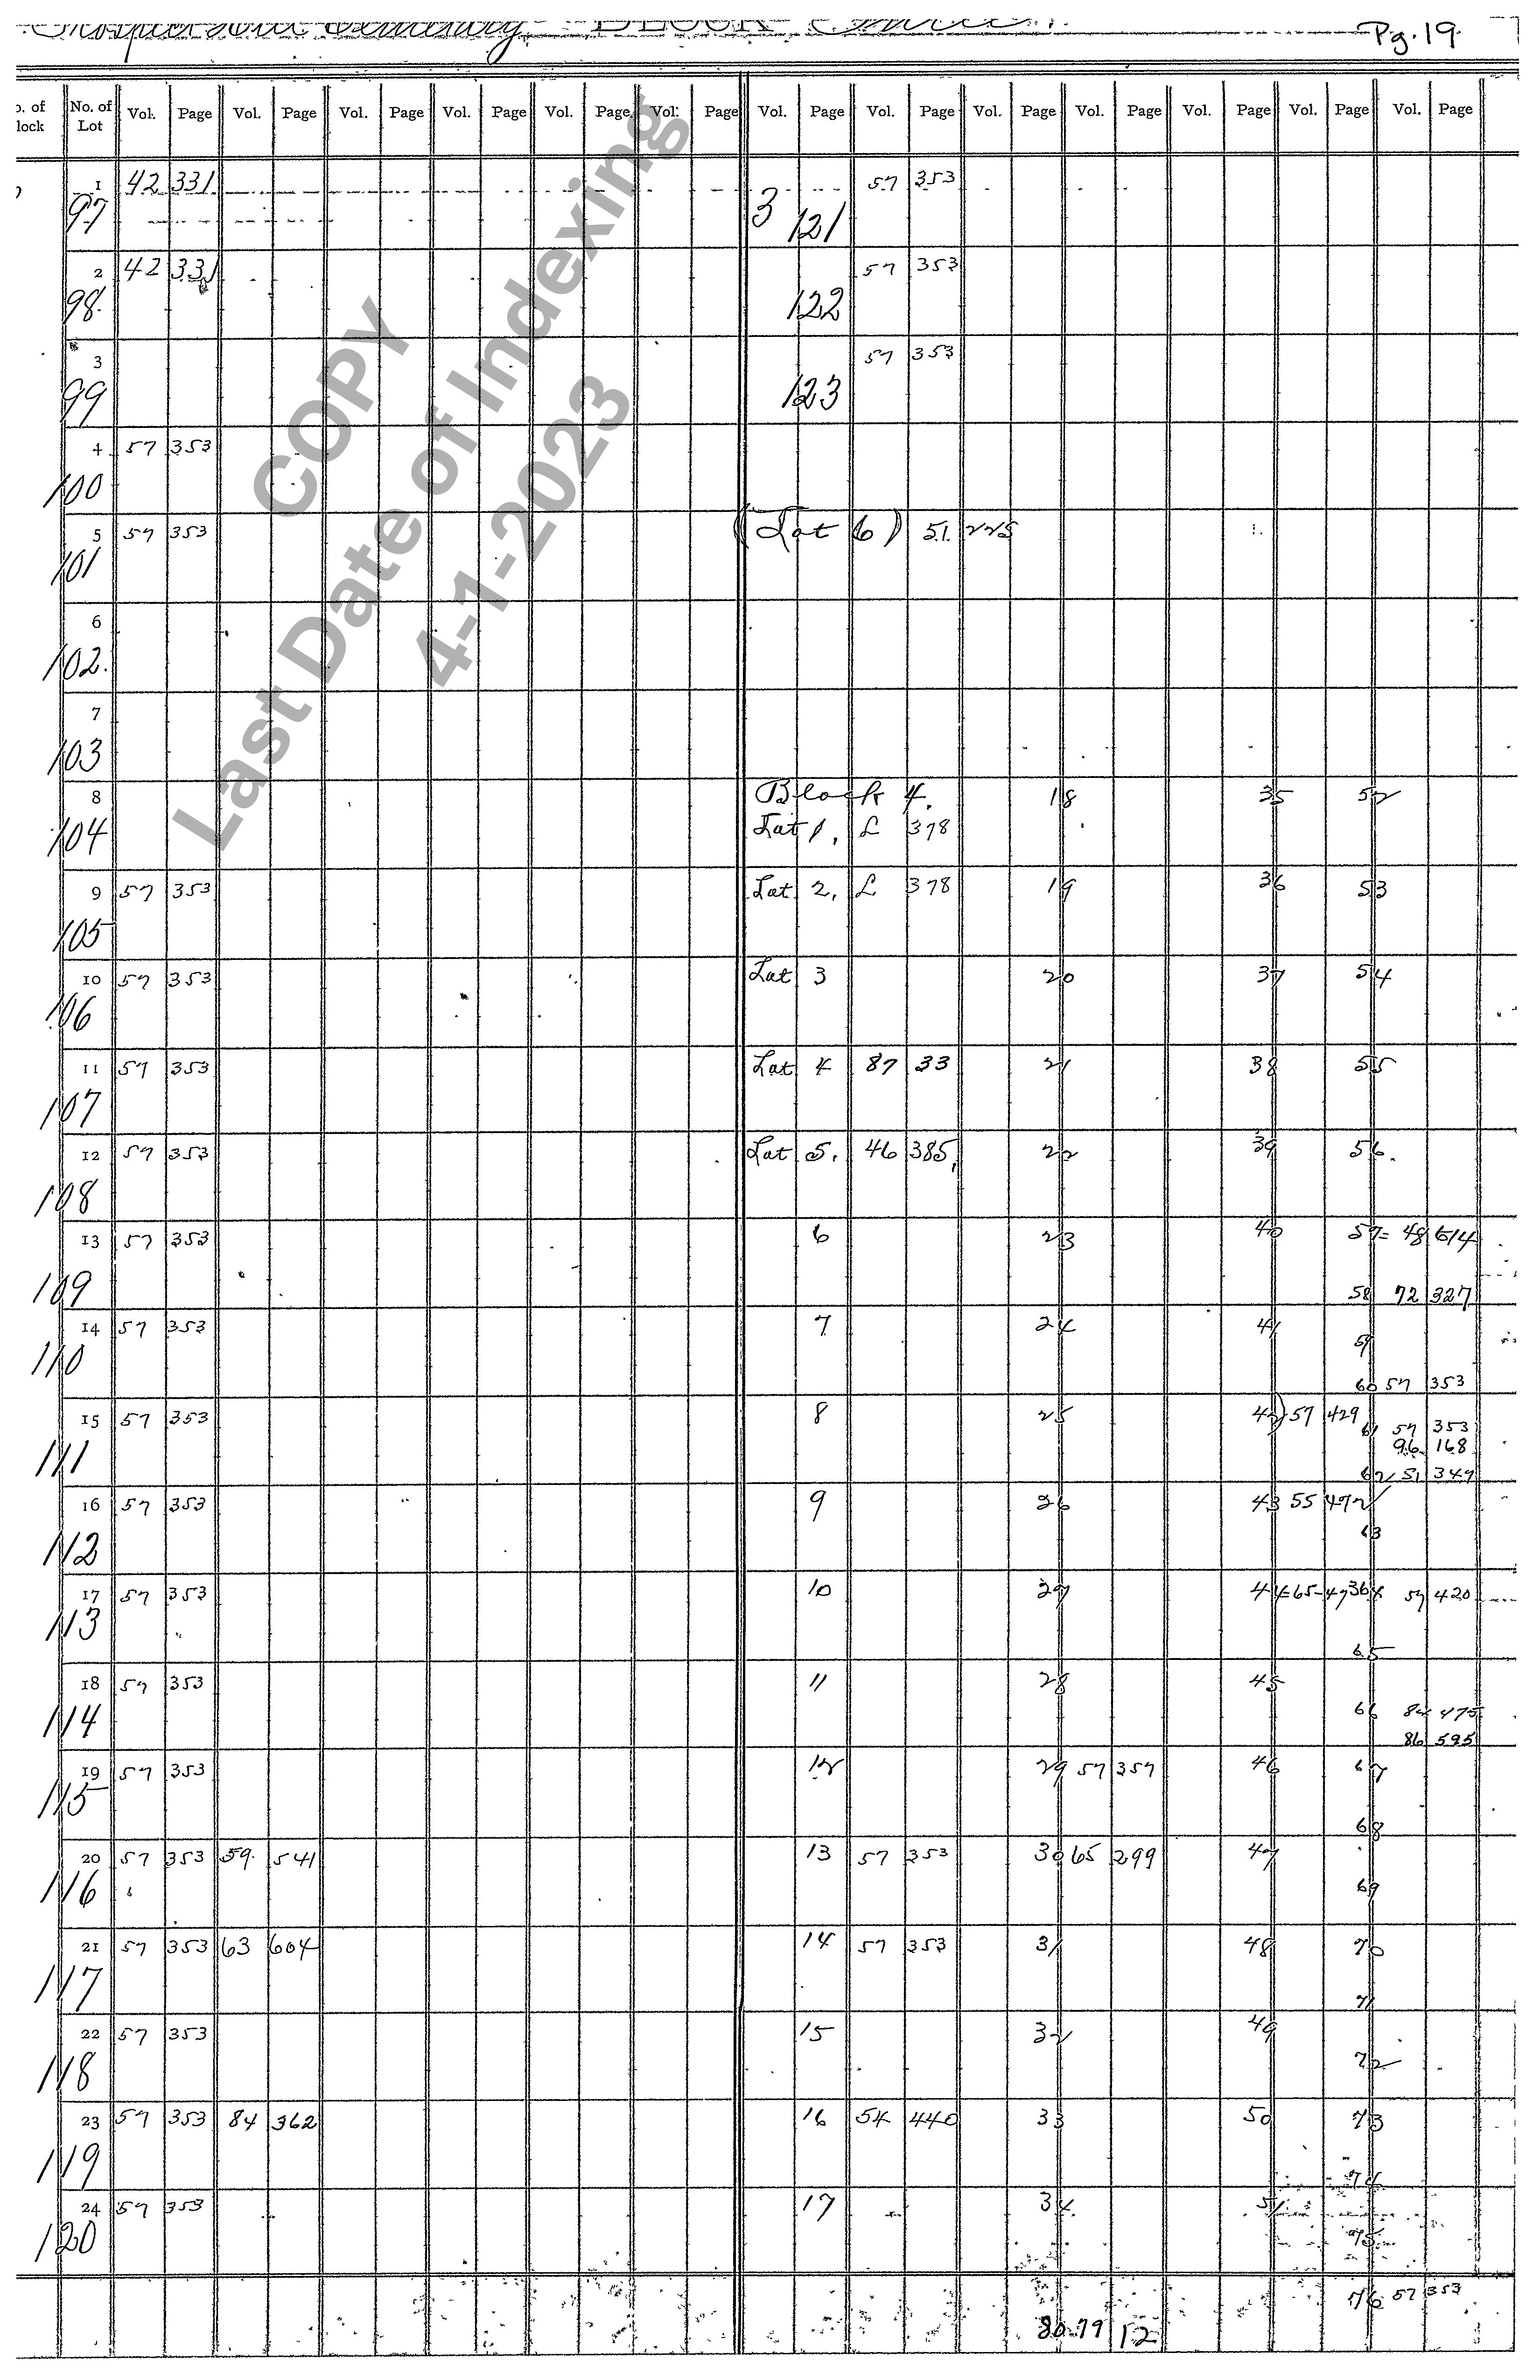 Pg. 19
No. of Lot Vol. Page Vol. Page Vol. Page Vol. Page Vol. Page Vol. Page Vol. Page Vol. Page Vol. Page Vol. Page Vol. Page Vol. Page Vol. Page
1 42 331 57 353
97 3 121
2 42 331 57 353
98 122
3 57 353
99 123
4 57 353
100
5 57 353 (Lot 6) 51 225
101
6
102
7
103
8 Block 4. 18 35 52
104 Lot 1, L 378
9 57 353 Lot 2, L 378 19 36 53
105
10 57 353 Lot 3 20 37 54
106
11 57 353 Lot 4 87 33 21 38 55
107
12 57 353 Lot 5, 46 385 22 39 56
108
13 57 353 6 23 40 57= 48 614
109 58 72 327
14 57 353 7 24 41
110 59
60 57 353
15 57 353 8 25 42) 57 429
61 57 353
111 96 168
62 51 349
16 57 353 9 26 43 55 472
112 63
17 57 353 10 27 44 65-47 364 57 420
113
65
18 57 353 11 28 45
114 66 84 475
86 595
19 57 353 12 29 57 357 46 67
115
68
20 57 353 59 541 13 57 353 30 65 299 47
116 69
21 57 353 63 604 14 57 353 31 48 70
117
71
22 57 353 15 32 49
118 72
23 57 353 84 362 16 54 440 33 50 73
119
74
24 57 353 17 34 51
120 75
76 57 353
80 79 12
COPY
Last Date of Indexing
4-1-2023